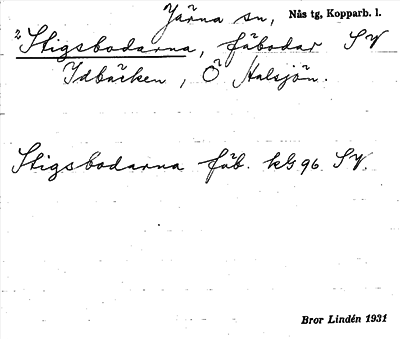 Järna sn, Nås tg, Kopparb. l.
2 Stigsbodarna, fäbodar SV
Idbäcken, Ö Halsjön.
Stigsbodarna fäb. kG 96 SV.
Bror Lindén 1931